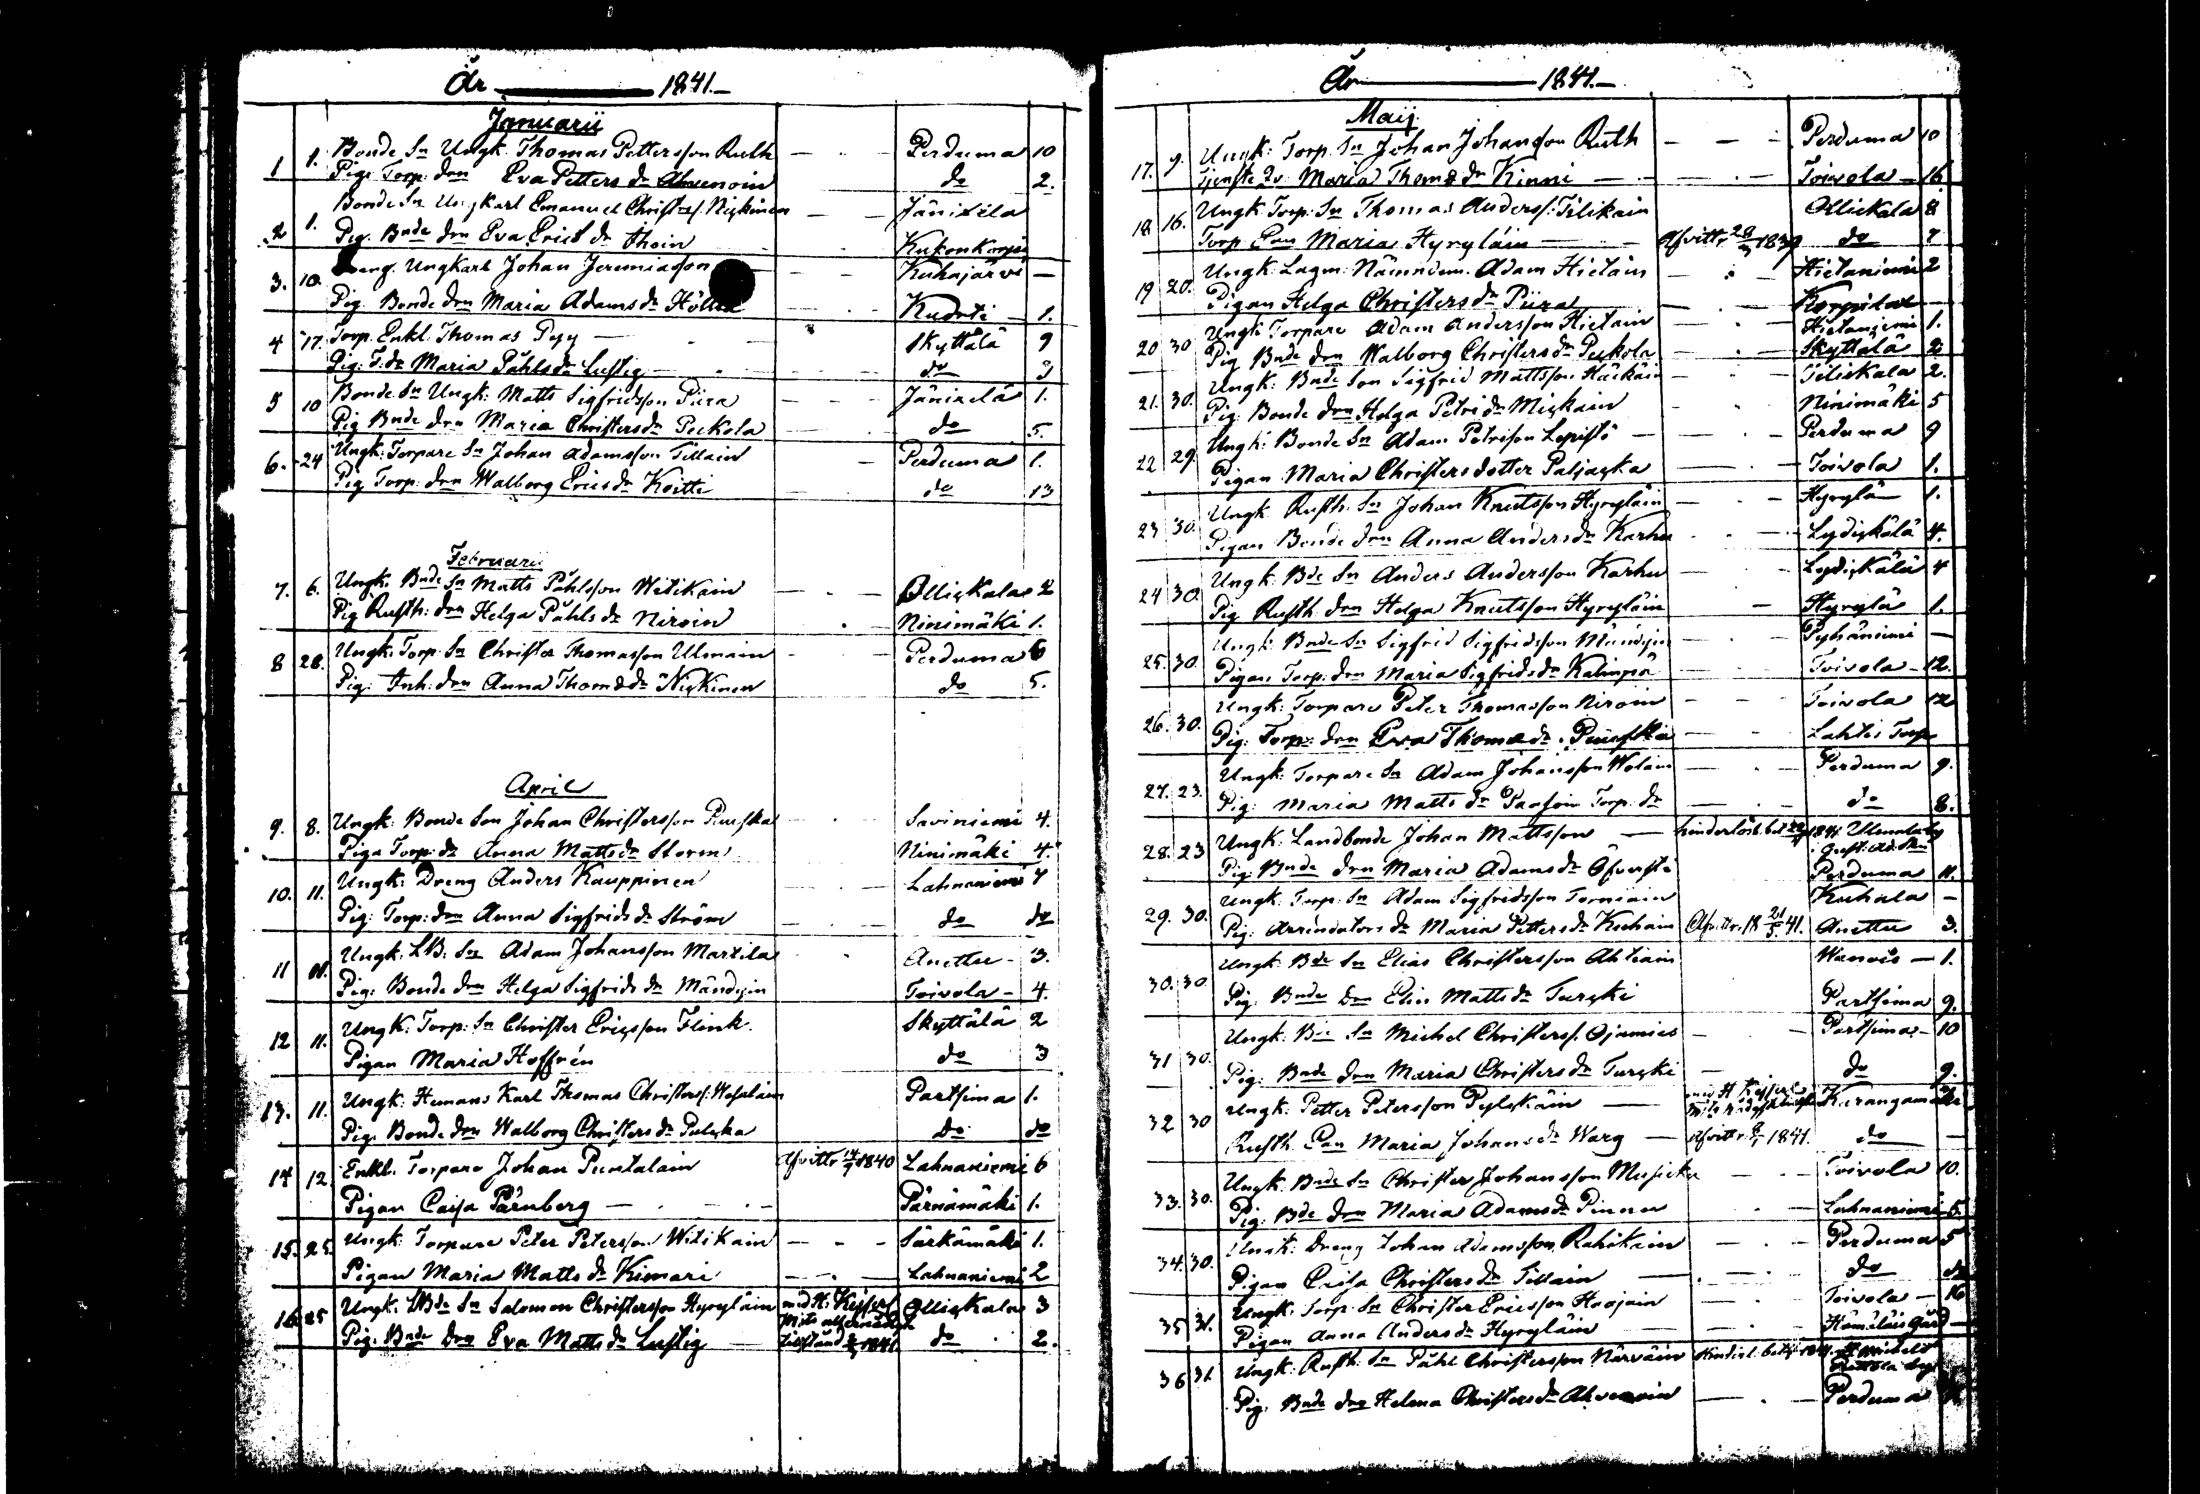 År 1841.
Januarii
1 1. Bonde Sn Ungk. Thomas Pettersson Ruth Perduma 10
Pig: Torp: drn Eva Petters dr Ahvenoin do 2.
2 1. Bonde Sn Ungkarl Emanuel Christers: Nigkinen Jänixilä
Pig. Bnde drn Eva Erics dr Kukonkorpi
3. 10. Dreng. Ungkarl Johan Jeremiasson Kuhajärvi
Pig. Bonde drn Maria Adams dr 1.
4 17. Torp. Enkl. Thomas Pyy Skyttälä 9
Pig: T: dr Maria Påhls dr Lustig do 3
5 10 Bonde Sn Ungk: Matts Sigfridsson Piira Jänixelä 1.
Pig Bnde drn Maria Christers dr Peckola do 5.
6. 24 Ungk: Torpare Sn Johan Adamsson Tillain Perduma 1.
Pig Torp: drn Walborg Erics dr Koitti do 13
Februarii
7. 6. Ungk. Bnde Sn Matts Påhlsson Witikain Olligkala 2
Pig Rusth: drn Helga Påhls dr Niroin Ninimäki 1.
8 28. Ungk: Torp: Sn Christer Thomasson Ulmain Perduma 6
Pig: Inh: drn Anna Thoms dr Nigkinen do 5.
April
9. 8. Ungk: Bonde Son Johan Christersson Saviniemi 4.
Piga Torp: dr Anna Matts dr Storm Ninimäki 4.
10. 11. Ungk: Dreng Anders Kauppinen Lahnaniemi 7
Pig: Torp: drn Anna Sigfrids dr Ström do do
11 11. Ungk. LB: Sn Adam Johansson Martila Anettu 3.
Pig: Bonde drn Helga Sigfrids dr Mändyin Toivola 4.
12 11. Ungk: Torp: Sn Christer Ericsson Flink. Skyttälä 2
Pigan Maria Hoffrén do 3
13. 11. Ungk: Hemans Karl Thomas Christers: Partsima 1.
Pig: Bonde drn Walborg Christers dr Pulgka Do do
14 12 Enkl. Torpare Johan Puntalain Afvittr 1840 Lahnaniemi 6
Pigan Caisa Pärnberg Pärnämäki 1.
15. 25. Ungk: Torpare Peter Petersson Witikain Särkämäki 1.
Pigan Maria Matts dr Kimari Lahnaniemi 2
16. 25 Ungk. LBde Sn Salomon Christersson Hyryläin Olligkala 3
Pig: Bnde drn Eva Matts dr Lustig 1841. do 2.
År 1841.
Maij.
17. 9. Ungk: Torp: Sn Johan Johansson Ruth Perduma 10
Tjenste Maria Thoms dr Kinni Toivola 16
18 16. Ungk: Torp: Sn Thomas Anderss: Tilikain Ollickala 8
Torp Maria Hyryläin Afvittr 1839 do 7
19 20. Ungk: Lagm: Nämndem. Adam Hietain Hietaniemi 2
Pigan Helga Christers dr Piira
20 30 Ungk: Torpare Adam Andersson Hietain Hietaniemi 1.
Pig Bnde drn Walborg Christers dr Peckola Skyttälä 2
21. 30. Ungk: Bnde Son Sigfrid Mattsson Häckäin 2.
Pig: Bonde drn Helga Petri dr Migkain Ninimäki 5
22 29. Ungk: Bonde Sn Adam Petrisson Lepistö Perduma 9
Pigan Maria Christersdotter Paljagka Toivola 1.
23 30. Ungk Rusth: Sn Johan Knutsson Hyryläin Hyrylä 1.
Pigan Bonde drn Anna Anders dr Karhu Lydigkälä 4.
24 30. Ungk: Bde Sn Anders Andersson Karhu Lydigkälä 4
Pig Rusth: drn Helga Knutsson Hyryläin Hyrylä 1.
25. 30. Ungk: Bnde Sn Sigfrid Sigfridsson Mändyin Pyhäniemi
Pigan Torp: drn Maria Sigfrids dr Kalimpä Toivola 12.
26. 30. Ungk: Torpare Peter Thomasson Niroin Toivola 12
Pig: Torp: drn Eva Thoms dr Lahtis Torp
27. 23. Ungk: Torpare Sn Adam Johansson Wolain Perduma 9.
Pig: Maria Matts dr Paasoin Torp: dr do 8.
28. 23 Ungk: Landbonde Johan Mattsson hinderlösh. bet 1841
Pig: Bnde drn Maria Adams dr Öfversti Perduma 11.
29. 30. Ungk: Torp: Sn Adam Sigfridsson Torniain Kuhala
Pig: Arrendators dr Maria Petters dr Kuhain Afvittr. 18 21/5 41. Anettu 3.
30. 30. Ungk: Bde Sn Elias Christersson Ahtiain 1.
Pig: Bnde Drn Elin Matts dr Turgki Partsima 9.
31 30. Ungk: Bde Sn Michel Christerss. Ojamies Partsima 10
Pig: Bnde drn Maria Christers dr Turgki do 9.
32 30 Ungk: Petter Petersson Pylgkäin Karangamäki
Rusth Maria Johans dr Warg Afvittr 1841. do
33. 30. Ungk: Bnde Sn Christer Johansson Musicka Toivola 10.
Pig: Bde drn Maria Adams dr Pinnu Lahnaniemi 5.
34. 30. Ungk: Dreng Johan Adamsson Rahikain Perduma 5
Pigan Caisa Christers dr Tillain do do
35 31. Ungk: Torp: Sn Christer Ericsson Haajain Toivola 16
Pigan Anna Anders dr Hyryläin Hämäläis Gård
36 31. Ungk: Rusth: Sn Påhl Christersson Närväin Hinderl. bet St Michels
Pig: Bnde drn Helena Christers dr Ahvenoin Perduma